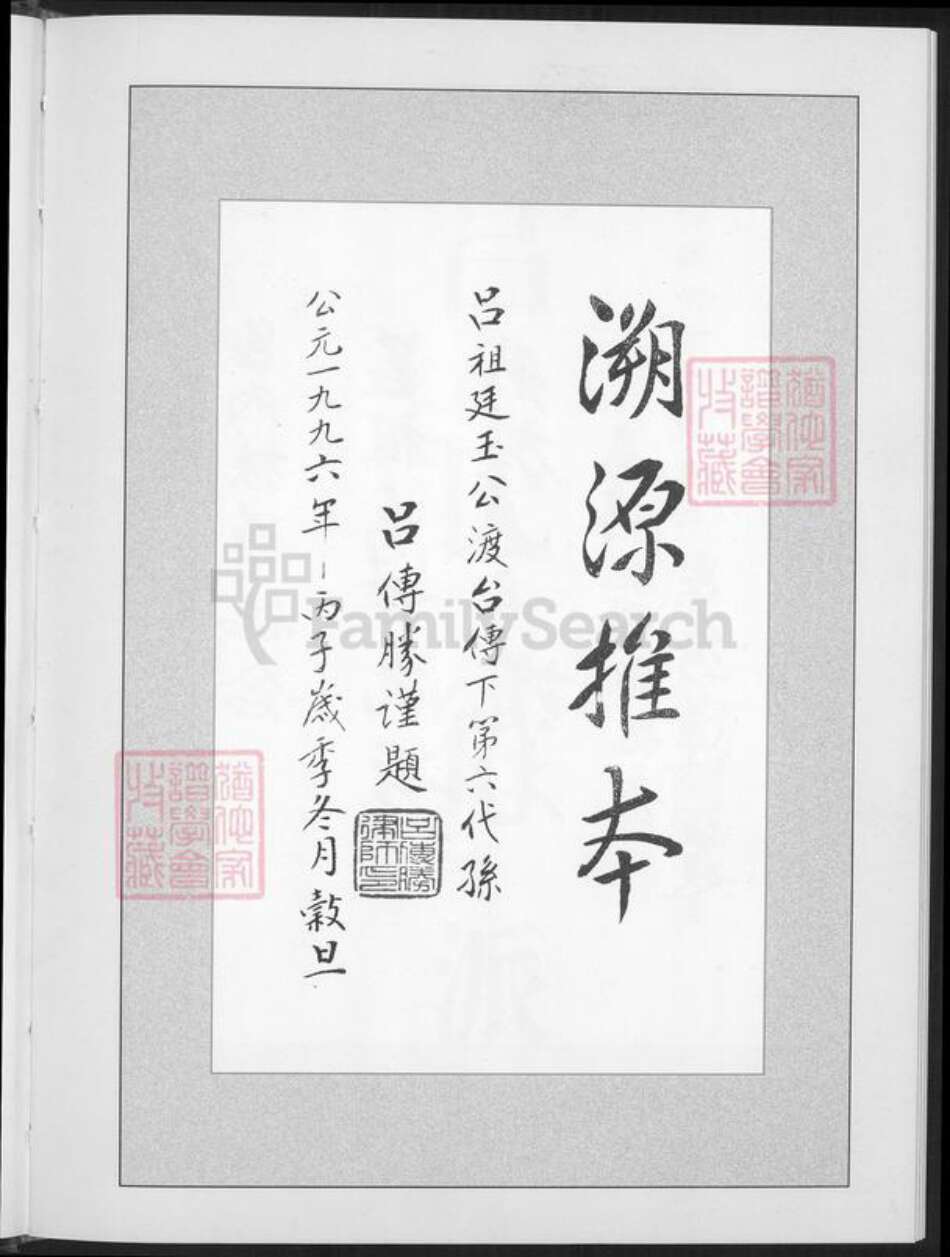 溯源推本
呂祖廷玉公渡台傳下第六代孫
呂傳勝謹題
呂傳勝律師印
公元一九九六年-丙子歲季冬月榖旦
猶他家譜學會收藏
猶他家譜學會收藏
FamilySearch